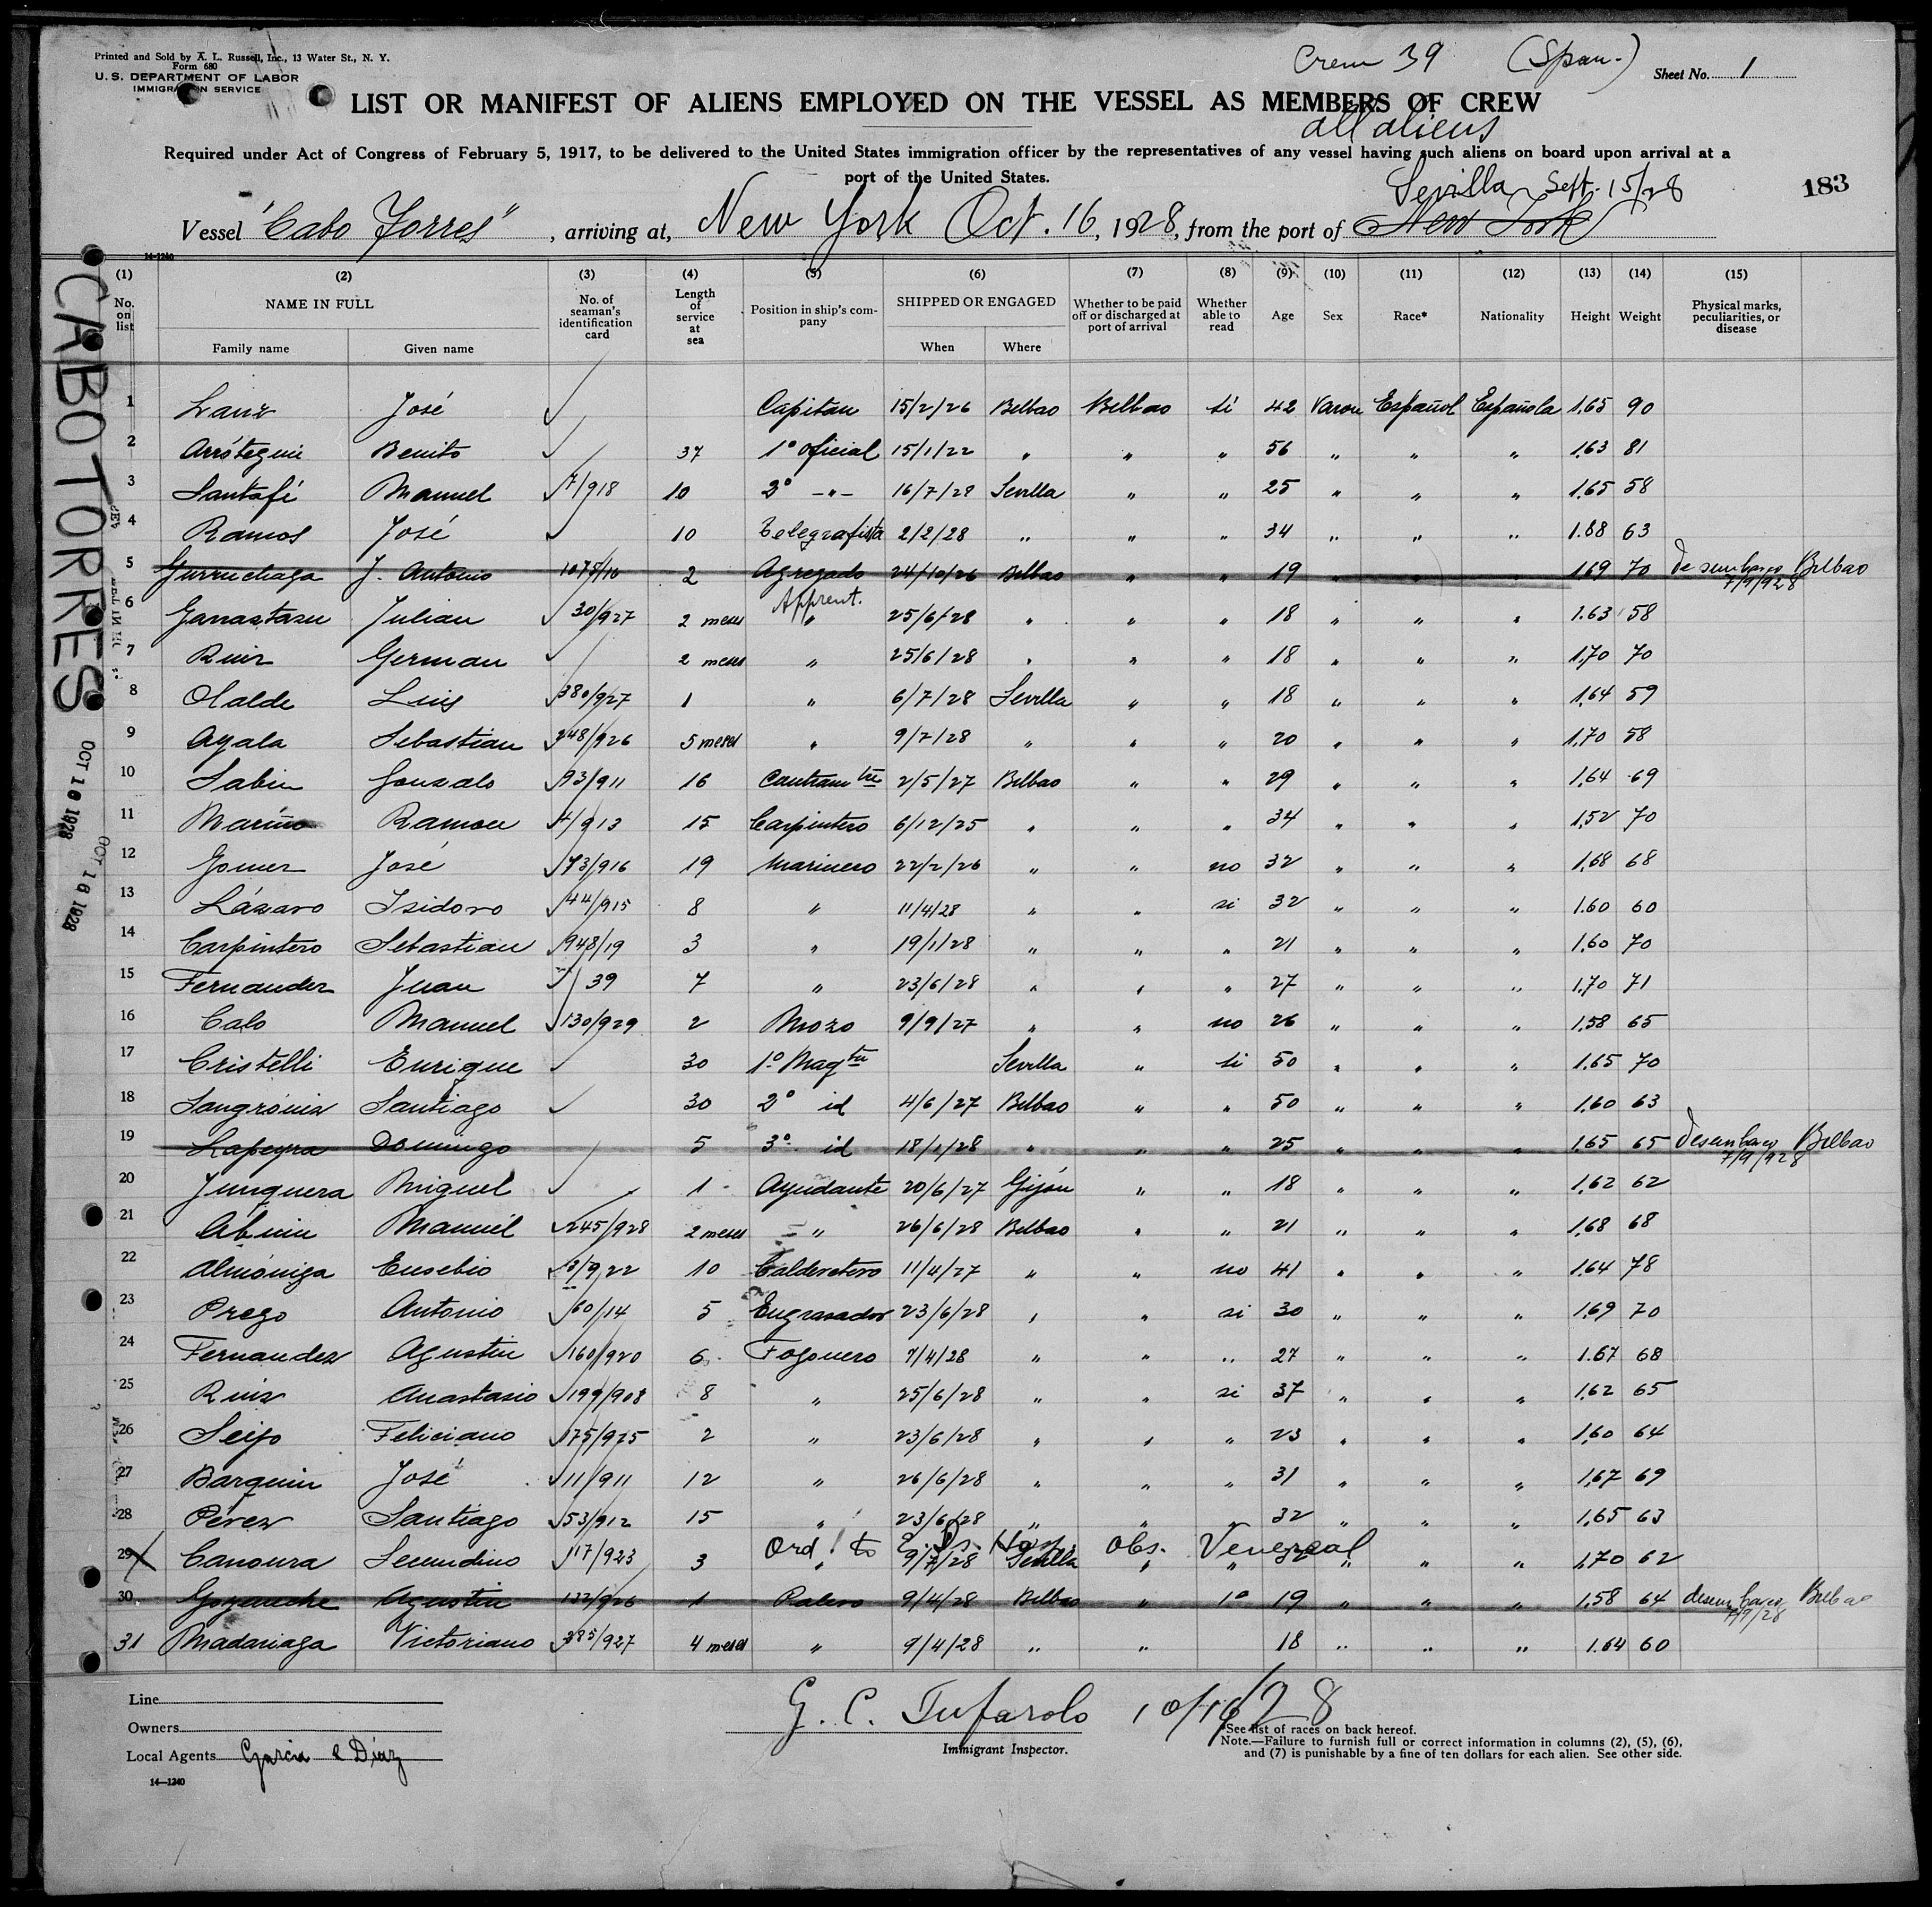 Printed and Sold by A. L. Russell, Inc., 13 Water St., N. Y.
Form 680
U. S. DEPARTMENT OF LABOR
IMMIGRATION SERVICE
Crew 39 (Span.) Sheet No. 1
LIST OR MANIFEST OF ALIENS EMPLOYED ON THE VESSEL AS MEMBERS OF CREW
all aliens
Required under Act of Congress of February 5, 1917, to be delivered to the United States immigration officer by the representatives of any vessel having such aliens on board upon arrival at a
port of the United States.
Sevilla Sept. 15/28
183
Vessel "Cabo Torres", arriving at, New York Oct. 16, 1928, from the port of New York
14-1240
(1) (2) (3) (4) (5) (6) (7) (8) (9) (10) (11) (12) (13) (14) (15)
No. on list NAME IN FULL Family name Given name No. of seaman's identification card Length of service at sea Position in ship's company SHIPPED OR ENGAGED When Where Whether to be paid off or discharged at port of arrival Whether able to read Age Sex Race* Nationality Height Weight Physical marks, peculiarities, or disease
1 Lanz José Capitan 15/2/26 Bilbao Bilbao si 42 Varon Español Española 1,65 90
2 Arróstegui Benito 37 1º oficial 15/1/22 " " " 56 " " " 1,63 81
3 Santafé Manuel 7/918 10 2º -"- 16/7/28 Sevilla " " 25 " " " 1,65 58
4 Ramos José 10 Telegrafista 2/2/28 " " " 34 " " " 1.68 63
5 Gurruchaga J. Antonio 1075/10 2 Agregado 24/10/26 Bilbao " " 19 " " " 1,69 70 desembarco Bilbao 7/9/928
Apprent.
6 Garrastazu Julian 30/927 2 meses " 25/6/28 " " " 18 " " " 1.63 58
7 Ruiz German 2 meses " 25/6/28 " " " 18 " " " 1,70 70
8 Olalde Luis 380/927 1 " 6/7/28 Sevilla " " 18 " " " 1,64 59
9 Ayala Sebastian 248/926 5 meses " 9/7/28 " " " 20 " " " 1,70 58
10 Sabin Gonzalo 93/911 16 Contramtre 2/5/27 Bilbao " " 29 " " " 1,64 69
11 Mariño Ramon 4/913 15 Carpintero 6/12/25 " " " 34 " " " 1,52 70
12 Gomez José 73/916 19 Marinero 22/2/26 " " no 32 " " " 1,68 68
13 Lázaro Isidoro 44/915 8 " 11/4/28 " " si 32 " " " 1.60 60
14 Carpintero Sebastian 948/19 3 " 19/1/28 " " " 21 " " " 1,60 70
15 Fernandez Juan 39 7 " 23/6/28 " " " 27 " " " 1,70 71
16 Calo Manuel 130/929 2 Mozo 9/9/27 " " no 26 " " " 1,58 65
17 Cristelli Enrique 30 1º Maqta Sevilla " si 50 " " " 1.65 70
18 Sangróniz Santiago 30 2º id 4/6/27 Bilbao " " 50 " " " 1,60 63
19 Lapeyra Domingo 5 3º id 18/1/28 " " " 25 " " " 1,65 65 desembarco Bilbao 7/9/928
20 Junquera Miguel 1 Ayudante 20/6/27 Gijón " " 18 " " " 1,62 62
21 Abuin Manuel 245/928 2 meses " 26/6/28 Bilbao " " 21 " " " 1,68 68
22 Almóniga Eusebio 10 Calderetero 11/4/27 " " no 41 " " " 1,64 78
23 Prego Antonio 60/14 5 Engrasador 23/6/28 " " si 30 " " " 1,69 70
24 Fernandez Agustin 160/920 6 Fogonero 7/4/28 " " " 27 " " " 1.67 68
25 Ruiz Anastasio 199/908 8 " 25/6/28 " " si 37 " " " 1,62 65
26 Seijo Feliciano 175/925 2 " 23/6/28 " " " 23 " " " 1,60 64
27 Barquin José 11/911 12 " 26/6/28 " " " 31 " " " 1,67 69
28 Pérez Santiago 53/912 15 " 23/6/28 " " " 32 " " " 1,65 63
Ord. to E. Is. Hosp. Obs. Venereal
29 X Canoura Secundino 17/923 3 " 9/7/28 Sevilla " " " " " 1,70 62
30 Goyaneche Agustin 132/926 1 Palero 9/4/28 Bilbao " 1º 19 " " " 1,58 64 desembarco Bilbao 7/9/28
31 Madariaga Victoriano 385/927 4 meses " 9/4/28 " " 18 " " " 1.64 60
CABO TORRES
OCT 16 1928
OCT 16 1928
Line
Owners
Local Agents Garcia & Diaz
14-1240
G. C. Tufarolo 10/16/28
Immigrant Inspector.
*See list of races on back hereof.
Note.—Failure to furnish full or correct information in columns (2), (5), (6),
and (7) is punishable by a fine of ten dollars for each alien. See other side.